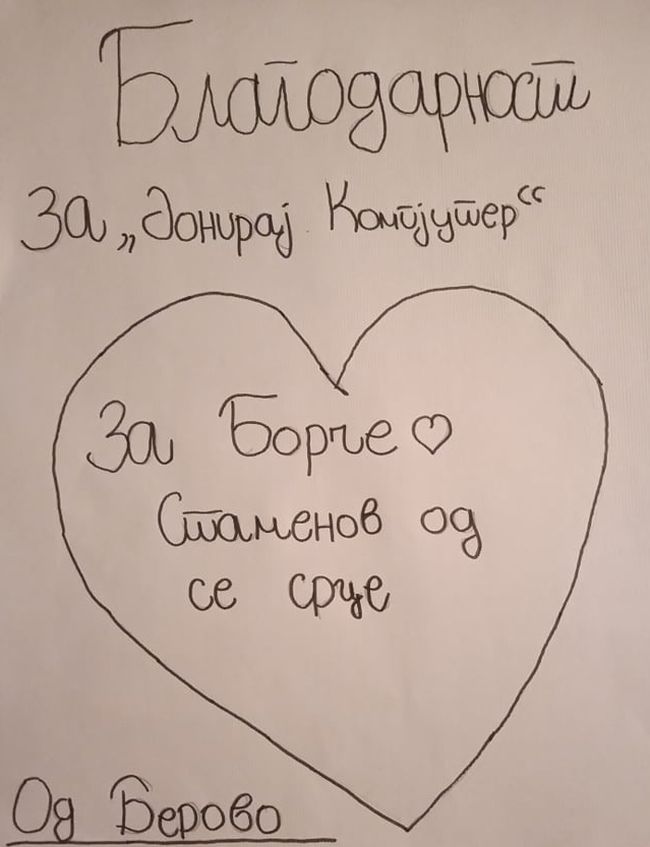 Благодарност
За „Донирај Компјутер“
За Борче ♡
Стаменов од
се срце
Од Берово